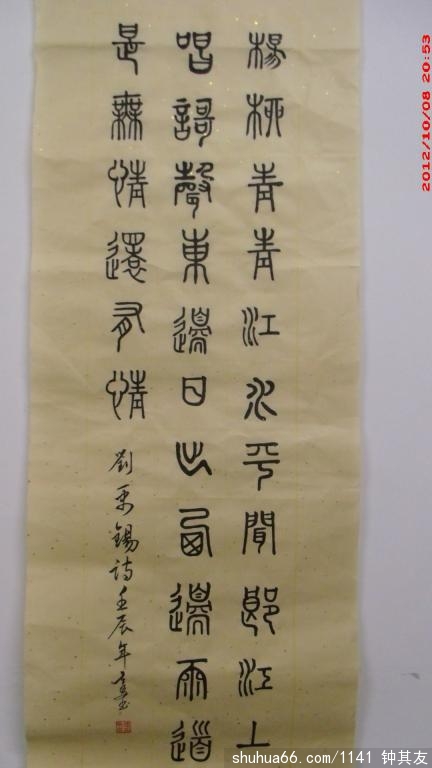 楊柳青青江水平聞郎江上
唱謌聲東邊日出西邊雨道
是無情還有情
劉禹錫詩壬辰年
2012/10/08 20:53
shuhua66.com/1141 钟其友